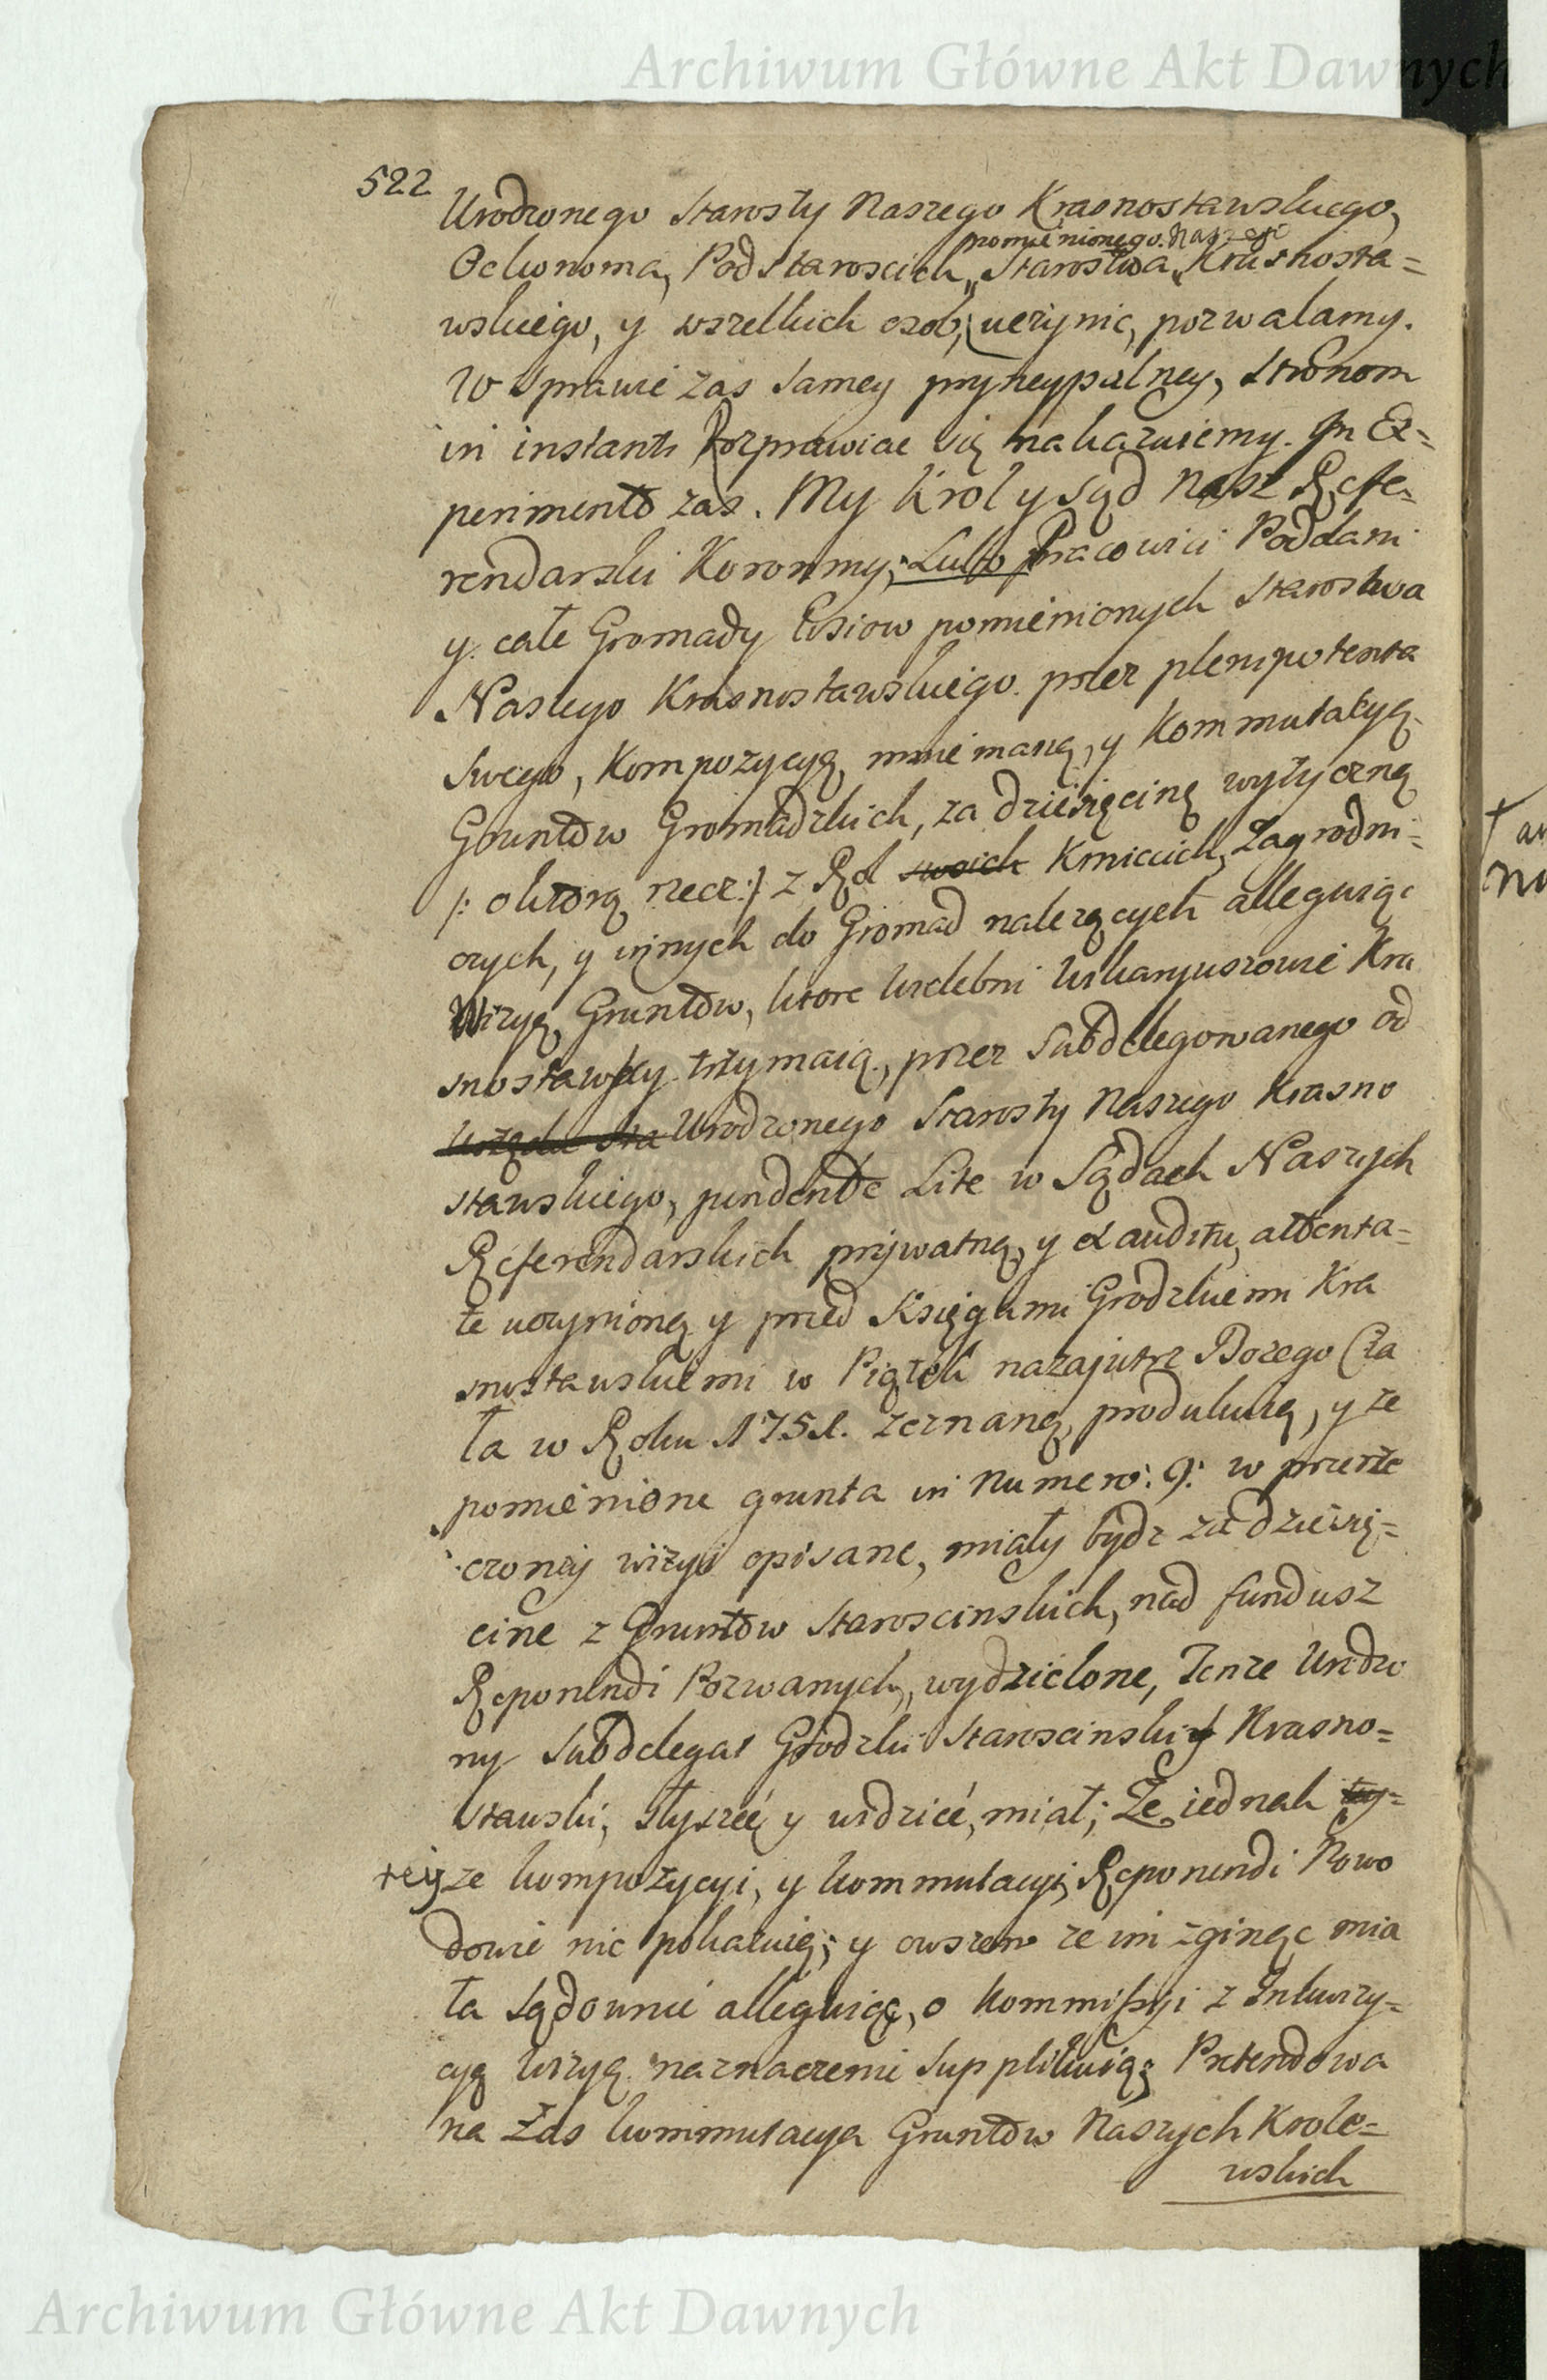 Archiwum Główne Akt Dawnych
522
Urodzonego Starosty Naszego Krasnostawskiego,
pomienionego Naszego
Oekonoma, Podstaroscich, Starostwa, Krasnosta=
wskiego, y wszelkich osob, uczynic, pozwalamy.
W sprawie zas samey pryncypalney, Stronom
in instanti Rozprawiac się nakazuiemy. In Ex=
perimento zas. My Krol y Sąd Nasz Refe=
rendarski Koronny; Lubo Pracowici Poddani
y całe Gromady Wsiow pomienionych Starostwa
Naszego Krasnostawskiego przez plenipotenta
Swego, Kompozycyą, mniemaną, y Kommutacyą
Gruntow Gromadzkich, za dziesięcinę wytyczną
/: o ktorą rzecz :/ z Rol swoich Kmiecich, Zagrodni=
czych, y innych do Gromad nalezących alleguiąc
Wizyą, Gruntow, ktore Wielebni Wikaryuszowie Kra
snostawscy trzymaią, przez Subdelegowanego od
Urzędu Sta Urodzonego Starosty Naszego Krasno
stawskiego, pendente Lite w Sądach Naszych
Referendarskich prywatną, y ex auditu, attenta=
te uczynioną y przed Księgami Grodzkiemi Kra
snostawskiemi w Piątek nazajutrz Bozego Cia
ła w Roku 1751. zeznaną, produkuią, y ze
pomienione grunta in Numero: 9: w przerze
czoney wizyi opisane, miały bydz za dziesię=
cine z Gruntow Staroscinskich, nad fundusz
Reponendi Pozwanych, wydzielone, Tenze Urodzo
ny Subdelegat Grodzki Staroscinski Krasno=
stawski, słyszeć y widzieć, miał; Ze iednak ty=
teyze kompozycyi, y kommutacyi, Reponendi Powo
dowie nic pokazuią; y owszem ze im zginąc mia
ła Sądownie alleguiąc, o Kommissyi z Inkwizy=
cyą Wizyą naznaczenie Supplikuią; Pretendowa
na Zas kommutacya Gruntow Naszych Krole=
wskich
Archiwum Główne Akt Dawnych